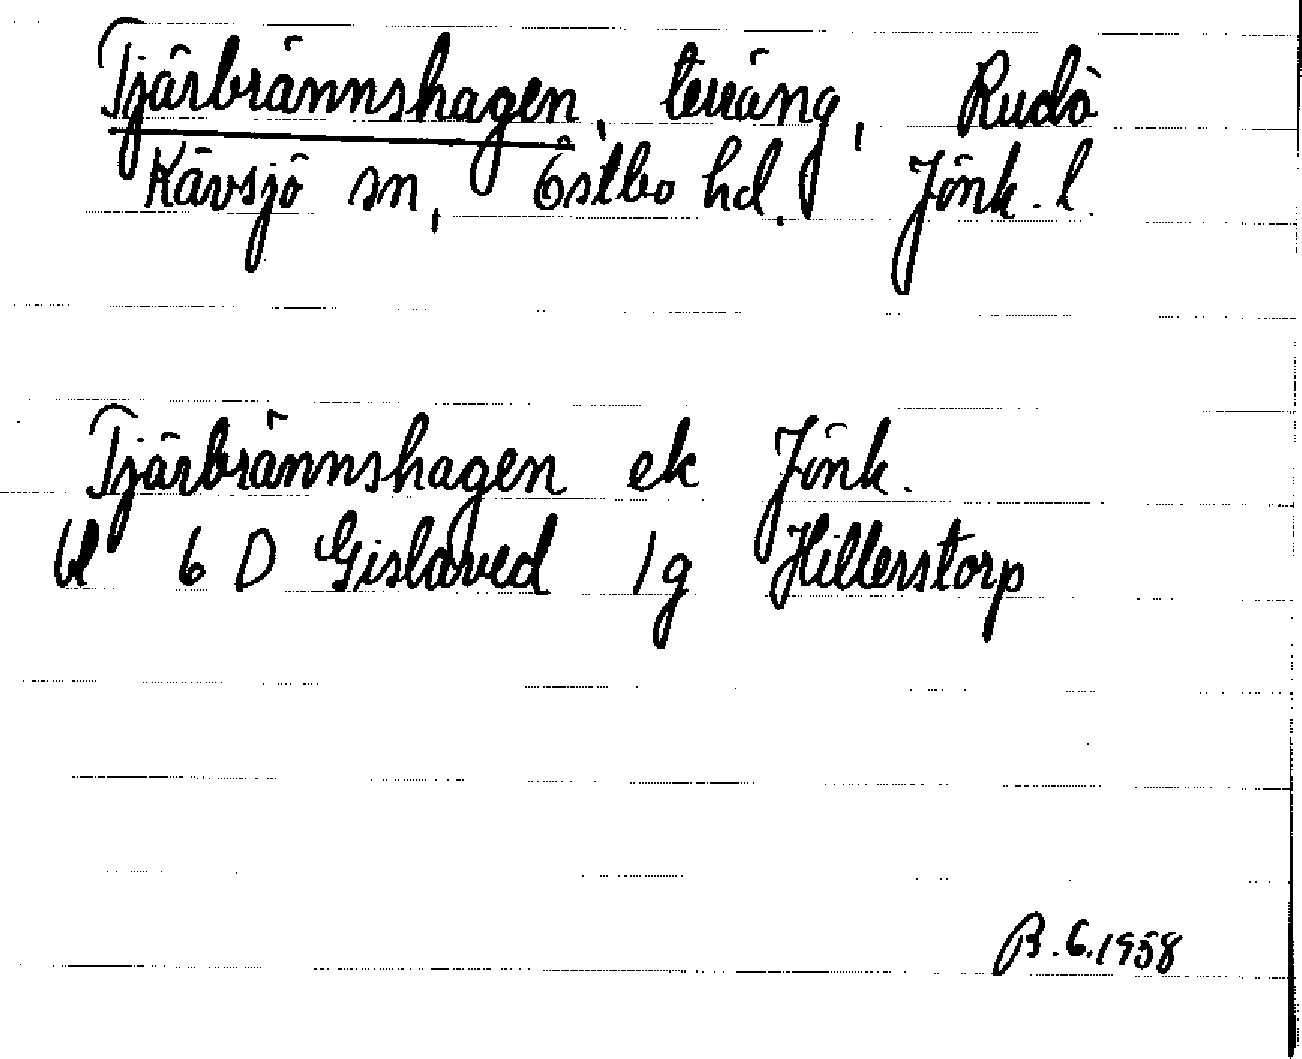 Tjärbrännshagen, terräng, Rudö
Kävsjö sn, Östbo hd. Jönk. l.
Tjärbrännshagen ek Jönk.
Bl 6 D Gislaved 1g Hillerstorp
B. G. 1958